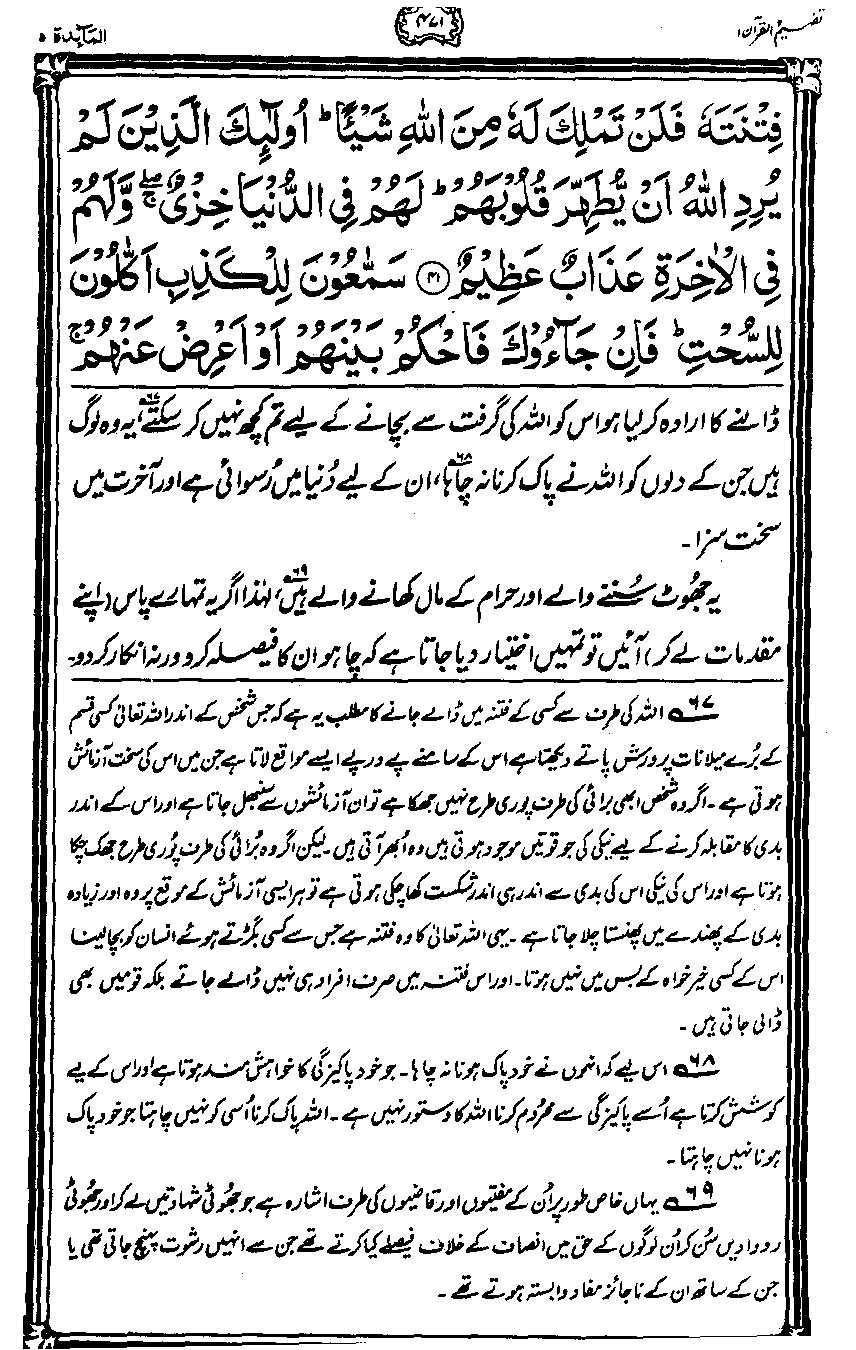 تفہیم القرآن ۱
۴۷۱
المآئدة ۵
فِتْنَتَهٗ فَلَنْ تَمْلِكَ لَهٗ مِنَ اللّٰهِ شَيْـًٔا ؕ اُولٰٓئِكَ الَّذِيْنَ لَمْ
يُرِدِ اللّٰهُ اَنْ يُّطَهِّرَ قُلُوْبَهُمْ ؕ لَهُمْ فِي الدُّنْيَا خِزْيٌ ۖۚ وَّلَهُمْ
فِي الْاٰخِرَةِ عَذَابٌ عَظِيْمٌ ﴿۴۱﴾ سَمّٰعُوْنَ لِلْكَذِبِ اَكّٰلُوْنَ
لِلسُّحْتِ ؕ فَاِنْ جَآءُوْكَ فَاحْكُمْ بَيْنَهُمْ اَوْ اَعْرِضْ عَنْهُمْ ۚ
ڈالنے کا ارادہ کر لیا ہو اس کو اللہ کی گرفت سے بچانے کے لیے تم کچھ نہیں کر سکتے۶۷، یہ وہ لوگ
ہیں جن کے دلوں کو اللہ نے پاک کرنا نہ چاہا۶۸، ان کے لیے دُنیا میں رُسوائی ہے اور آخرت میں
سخت سزا۔
یہ جھُوٹ سُننے والے اور حرام کے مال کھانے والے ہیں۶۹، لہٰذا اگر یہ تمہارے پاس (اپنے
مقدمات لے کر) آئیں تو تمہیں اختیار دیا جاتا ہے کہ چاہو ان کا فیصلہ کرو ورنہ انکار کر دو۔
۶۷ اللہ کی طرف سے کسی کے فتنہ میں ڈالے جانے کا مطلب یہ ہے کہ جس شخص کے اندر اللہ تعالیٰ کسی قسم
کے بُرے میلانات پرورش پاتے دیکھتا ہے اس کے سامنے پے در پے ایسے مواقع لاتا ہے جن میں اس کی سخت آزمائش
ہوتی ہے۔ اگر وہ شخص ابھی برائی کی طرف پوری طرح نہیں جھکا ہے تو ان آزمائشوں سے سنبھل جاتا ہے اور اس کے اندر
بدی کا مقابلہ کرنے کے لیے نیکی کی جو قوتیں موجود ہوتی ہیں وہ اُبھر آتی ہیں۔ لیکن اگر وہ بُرائی کی طرف پُوری طرح جھک چکا
ہوتا ہے اور اس کی نیکی اس کی بدی سے اندر ہی اندر شکست کھا چکی ہوتی ہے تو ہر ایسی آزمائش کے موقع پر وہ اور زیادہ
بدی کے پھندے میں پھنستا چلا جاتا ہے۔ یہی اللہ تعالیٰ کا وہ فتنہ ہے جس سے کسی بگڑتے ہوئے انسان کو بچا لینا
اس کے کسی خیر خواہ کے بس میں نہیں ہوتا۔ اور اس فتنہ میں صرف افراد ہی نہیں ڈالے جاتے بلکہ قومیں بھی
ڈالی جاتی ہیں۔
۶۸ اس لیے کہ انہوں نے خود پاک ہونا نہ چاہا۔ جو خود پاکیزگی کا خواہش مند ہوتا ہے اور اس کے لیے
کوشش کرتا ہے اُسے پاکیزگی سے محرُوم کرنا اللہ کا دستور نہیں ہے۔ اللہ پاک کرنا اُسی کو نہیں چاہتا جو خود پاک
ہونا نہیں چاہتا۔
۶۹ یہاں خاص طور پر اُن کے مفتیوں اور قاضیوں کی طرف اشارہ ہے جو جھُوٹی شہادتیں لے کر اور جھُوٹی
رودادیں سُن کر اُن لوگوں کے حق میں انصاف کے خلاف فیصلے کیا کرتے تھے جن سے انہیں رشوت پہنچ جاتی تھی یا
جن کے ساتھ ان کے ناجائز مفاد وابستہ ہوتے تھے۔